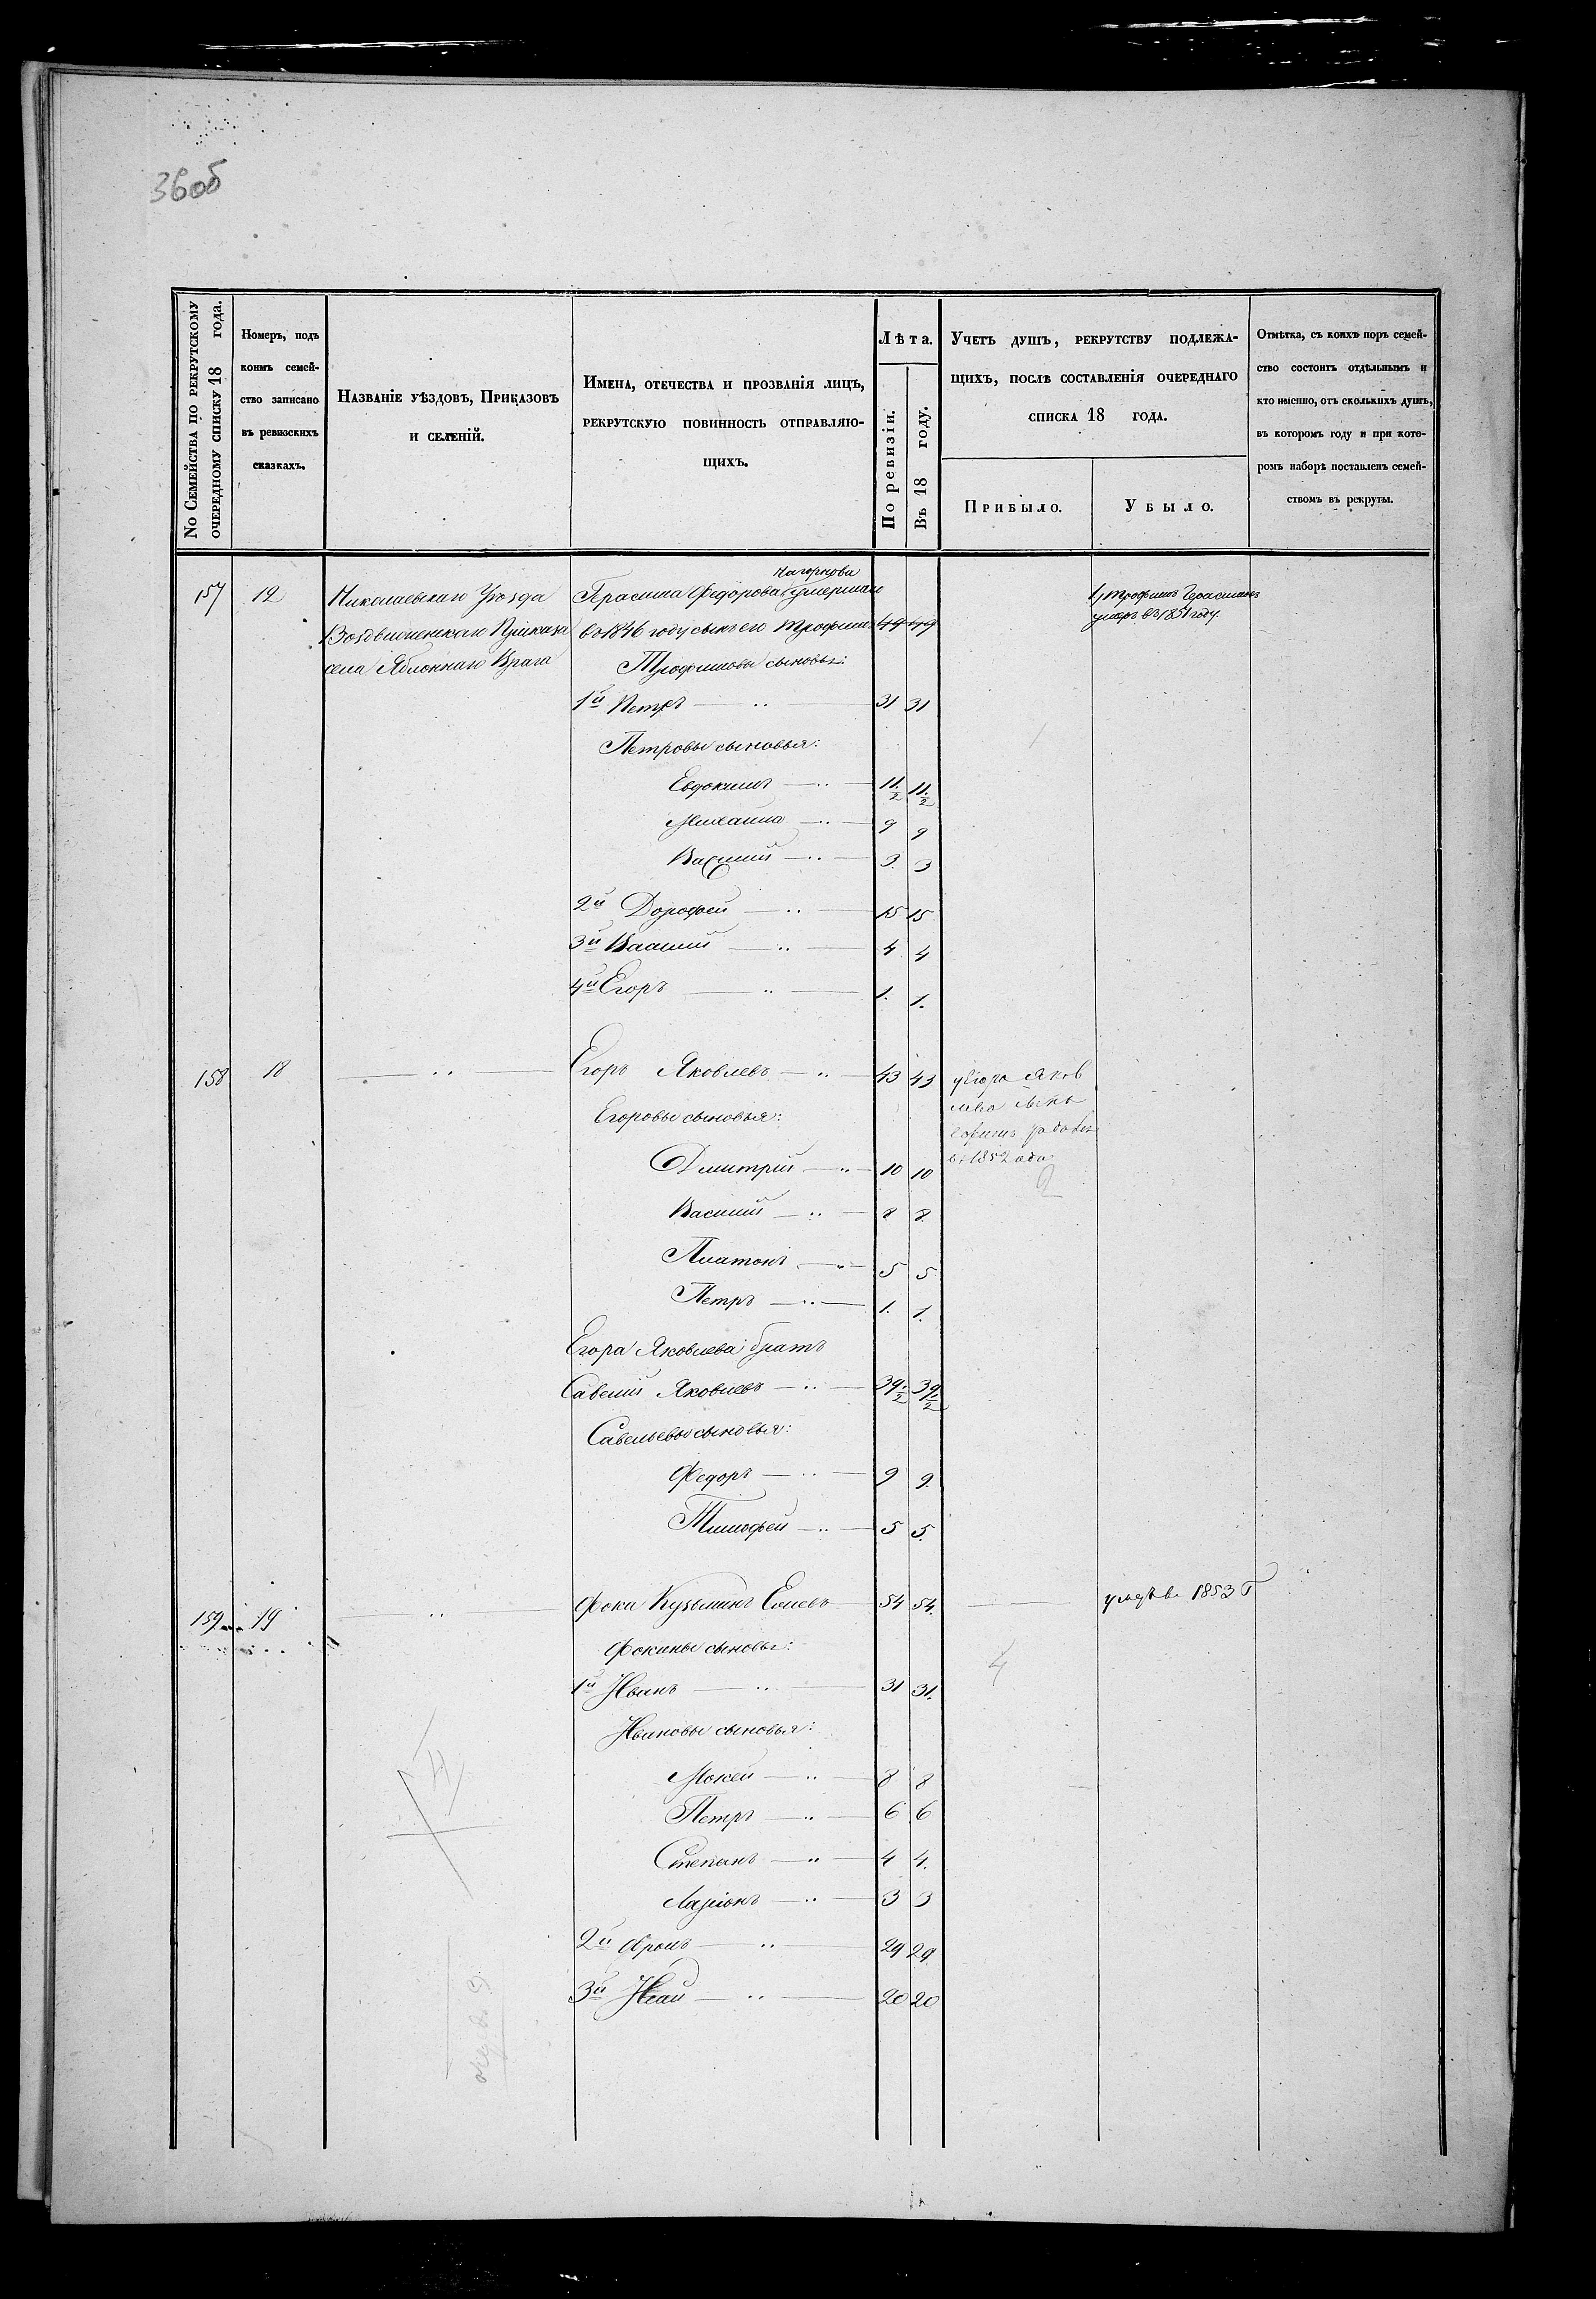 36об
No Семейства по рекрутскому очередному списку 18 года.
Номеръ, подъ коимъ семей-
ство записано
въ ревизскихъ
сказкахъ.
Названіе уѣздовъ, Приказовъ
и селеній.
Имена, отечества и прозванія лицъ,
рекрутскую повинность отправляю-
щихъ.
Лѣта.
По ревизіи.
Въ 18 году.
Учетъ душъ, рекрутству подлежа-
щихъ, послѣ составленія очереднаго
списка 18 года.
Прибыло.
Убыло.
Отмѣтка, съ коихъ поръ семей-
ство состоитъ отдѣльнымъ и
кто именно, отъ сколькихъ душъ,
въ которомъ году и при кото-
ромъ наборѣ поставленъ семей-
ствомъ въ рекруты.
Нагорнова
157 12 Николаевскаго Уѣзда Герасима Федорова умершаго
Воздвиженскаго Приказа в 1846 году сынъ его Трофимъ 49 49
села Яблоннаго Врага Трофимовы сыновья:
Трофимъ Герасимовъ
умеръ въ 1851 году.
1й Петръ 31 31
Петровы сыновья:
Евдокимъ 11 1/2 11 1/2
Михаила 9 9
Василий 3 3
2й Дорофей 15 15
3й Василий 4 4
4й Егоръ 1. 1.
158 18 Егоръ Яковлевъ 43 43
у Егора Яков
лева сынъ
въ 1852 года
2
Егоровы сыновья:
Дмитрий 10 10
Василий 8 8
Платонъ 5 5
Петръ 1. 1.
Егора Яковлева братъ
Савелий Яковлевъ 39 1/2 39 1/2
Савельевы сыновья:
Федоръ 9 9.
Тимофей 5 5.
159 19 Фока Кузьминъ Елисевъ 54 54. умеръ в. 1853 г
Фокины сыновья:
4
1й Иванъ 31 31.
Ивановы сыновья:
Мокей 8 8
Петръ 6 6
Степанъ 4 4.
Ларіонъ 3 3
2й Фролъ 29 29
3й Исай 20 20